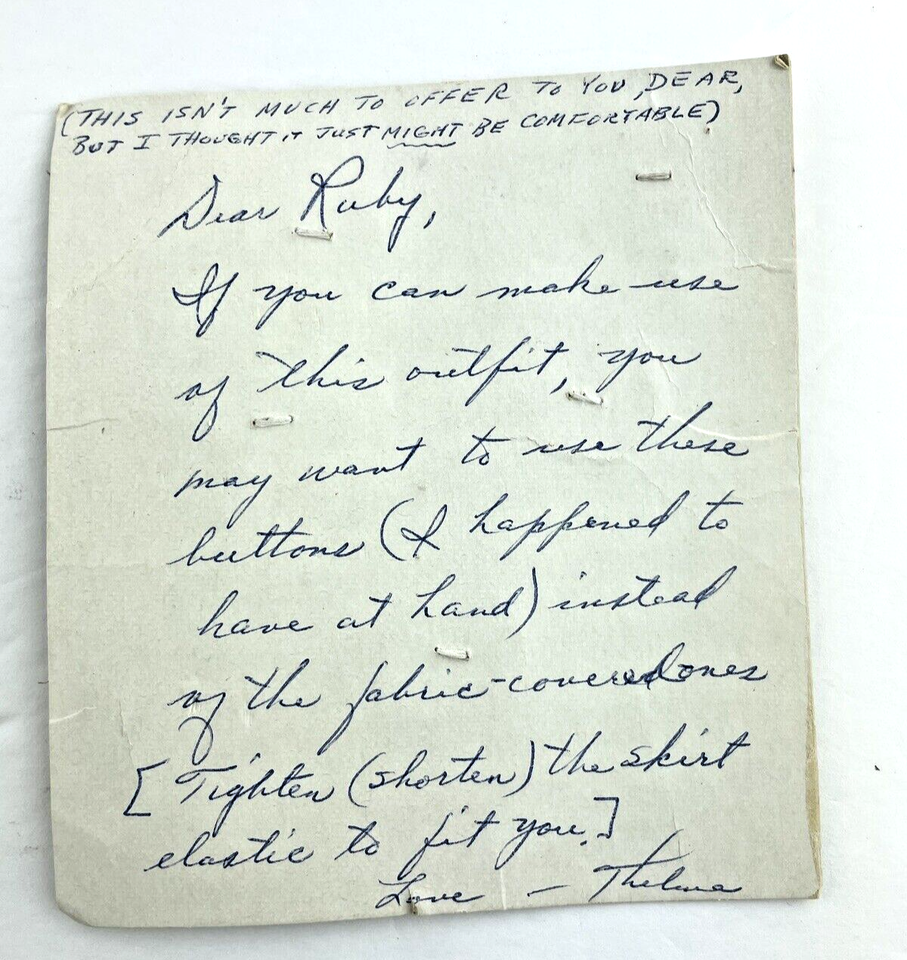 (THIS ISN'T MUCH TO OFFER TO YOU, DEAR,
BUT I THOUGHT IT JUST MIGHT BE COMFORTABLE)
Dear Ruby,
If you can make use
of this outfit, you
may want to use these
buttons (I happened to
have at hand) instead
of the fabric-covered ones
[Tighten (shorten) the skirt
elastic to fit you.]
Love – Thelma